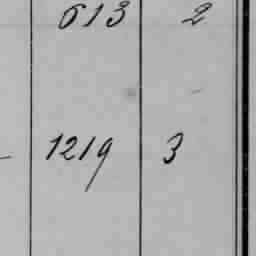 613 2
1219 3